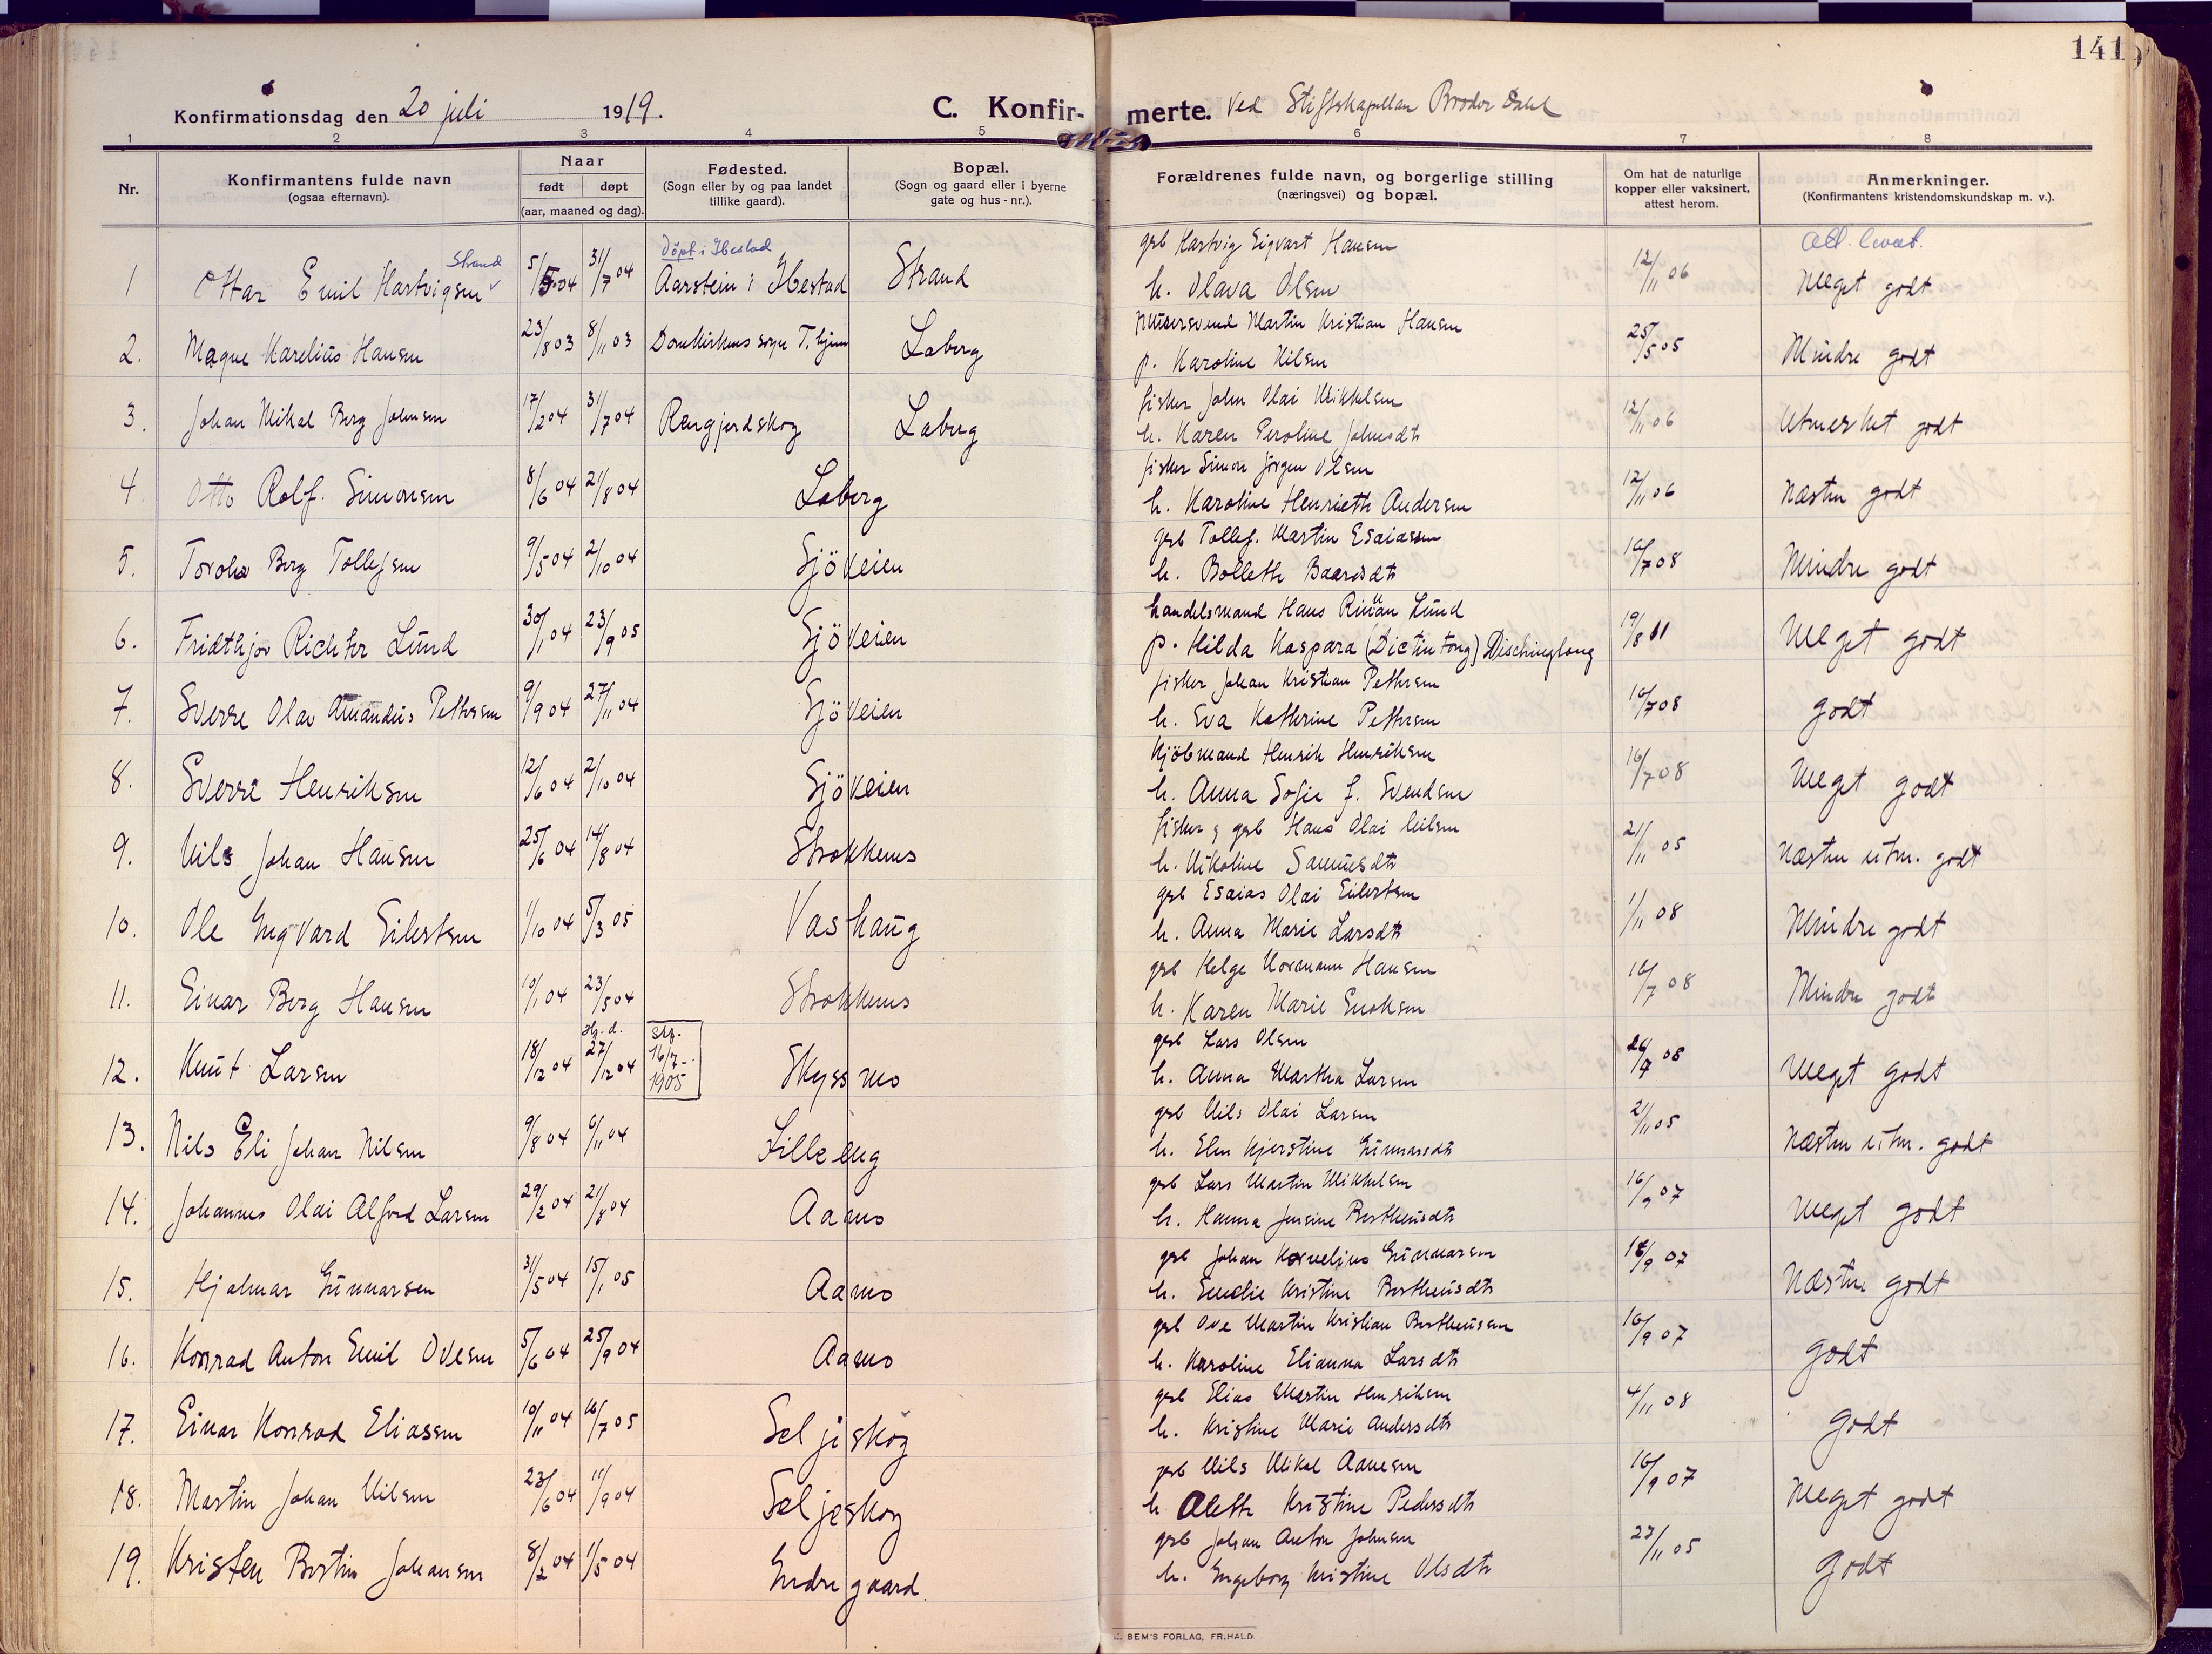 141
Konfirmationsdag den 20 juli 1919.
C. Konfir- merte. Ved Stiftskapellan Broder Dahl
1 2 3 4 5 6 7 8
Nr.
Konfirmantens fulde navn
(ogsaa efternavn).
Naar
født døpt
(aar, maaned og dag).
Fødested.
(Sogn eller by og paa landet
tillike gaard).
Bopæl.
(Sogn og gaard eller i byerne
gate og hus-nr.).
Forældrenes fulde navn, og borgerlige stilling
(næringsvei) og bopæl.
Om hat de naturlige
kopper eller vaksinert,
attest herom.
Anmerkninger.
(Konfirmantens kristendomskundskap m. v.).
Strand Döpt i Ibestad
1 Ottar Emil Hartvigsen 5/5 04 31/7 04 Aarstein i Ibestad Strand
grb Hartvig Sigvart Hansen
h. Olava Olsen 12/11 06 Meget godt
2. Magne Karelius Hansen 23/8 03 8/11 03 Domkirkens sogn T.hjem Laberg
Martin Kristian Hansen
p. Karoline Nilsen 25/5 05 Mindre godt
3. Johan Mikal Berg Johnsen 17/2 04 31/7 04 Laberg
fisker John Olai Mikkelsen
h. Karen Peroline Johnsdtr 12/11 06 Utmerket godt
4. Otto Rolf. Simonsen 8/6 04 21/8 04 Laberg
fisker Simon Jörgen Olsen
h. Karoline Henriette Andersen 12/11 06 Næsten godt
5. Berg Tollefsen 9/5 04 2/10 04 Sjöveien
grb Tollef. Martin Esaiassen
h. Bollette Baardsdtr 16/7 08 Mindre godt
6. Fridthjov Richter Lund 30/1 04 23/9 05 Sjöveien
handelsmand Hans Lund
p. Hilda Kaspara (Dictintong) Dischingtong 19/8 11 Meget godt
7. Sverre Olav Amandus Pettersen 9/9 04 27/11 04 Sjöveien
fisker Johan Kristian Pettersen
h. Eva Kathrine Pettersen 16/7 08 godt
8. Sverre Henriksen 12/6 04 2/10 04 Sjöveien
Kjöbmand Henrik Henriksen
h. Anna Sofie f. Svendsen 16/7 08 Meget godt
9. Nils Johan Hansen 25/6 04 14/8 04 Strokkenes
fisker g grb Hans Olai Nilsen
h. Nikoline Samuesdtr 21/11 05 Næsten utm. godt
10. Ole Ingvard Eilertsen 1/10 04 5/3 05 Vashaug
grb Esaias Olai Eilertsen
h. Anna Marie Larsdtr 1/11 08 Mindre godt
11. Einar Berg Hansen 10/1 04 23/5 04 Strokkenes
grb Helge Normann Hansen
h. Karen Marie Enoksen 16/7 08 Mindre godt
12. Knut Larsen 18/12 04 Hj. d. 27/12 04 Stf. 16/7- 1905 Skyssmo
grb Lars Olsen
h. Anna Martha Larsen Meget godt
13. Nils Eli Johan Nilsen 9/8 04 6/11 04 Lilleeng
grb Nils Olai Larsen
h. Elen Kjerstine Gunnarsdtr 21/11 05 Næsten utm. godt
14. Johannes Olai Alfred Larsen 29/2 04 21/8 04 Aamo
grb Lars Martin Mikkelsen
h. Hanna Jensine Bertheusdtr 16/9 07 Meget godt
15. Hjalmar Gunnarsen 31/5 04 15/1 05 Aamo
grb Johan Kornelius Gunnarsen
h. Emelie Kristine Bertheusdtr 16/9 07 Næsten godt
16. Konrad Anton Emil Ovesen 5/6 04 25/9 04 Aamo
grb Ove Martin Kristian Bertheussen
h. Karoline Elianna Larsdtr 16/9 07 godt
17. Einar Konrad Eliassen 10/11 04 16/7 05 Seljeskog
grb Elias Martin Henriksen
h. Kristine Marie Andersdtr 4/11 08 Godt
18. Martin Johan Nilsen 23/6 04 11/9 04 Seljeskog
grb Nils Mikal Aanesen
h Olette Kristine Pedersdtr 16/9 07 Meget godt
19. Kristen Bertin Johansen 8/2 04 1/5 04 Indregaard
grb Johan Anton Johnsen
h. Ingeborg Kristine Olsdtr 27/11 05 Godt
SEM'S FORLAG, FR.HALD.